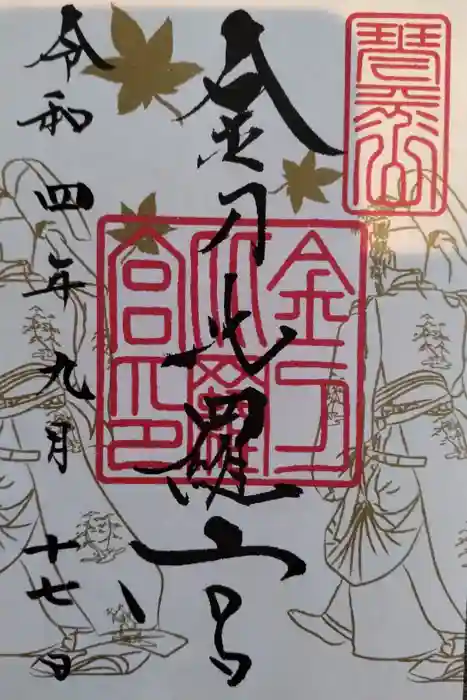 琴平山
金刀比羅宮
金刀
比羅
宮印
令和四年九月十七日